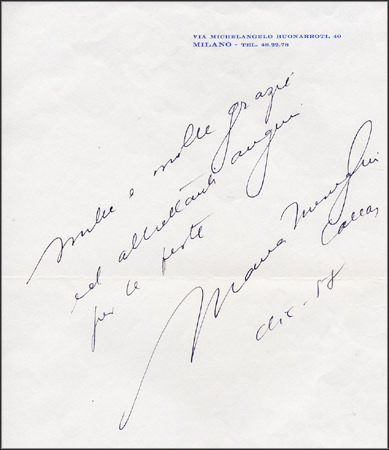 VIA MICHELANGELO BUONARROTI, 40
MILANO - TEL. 48.22.78
molte e molte grazie
ed altrettanti auguri
per le feste
Maria Meneghini
Callas
dic - 58